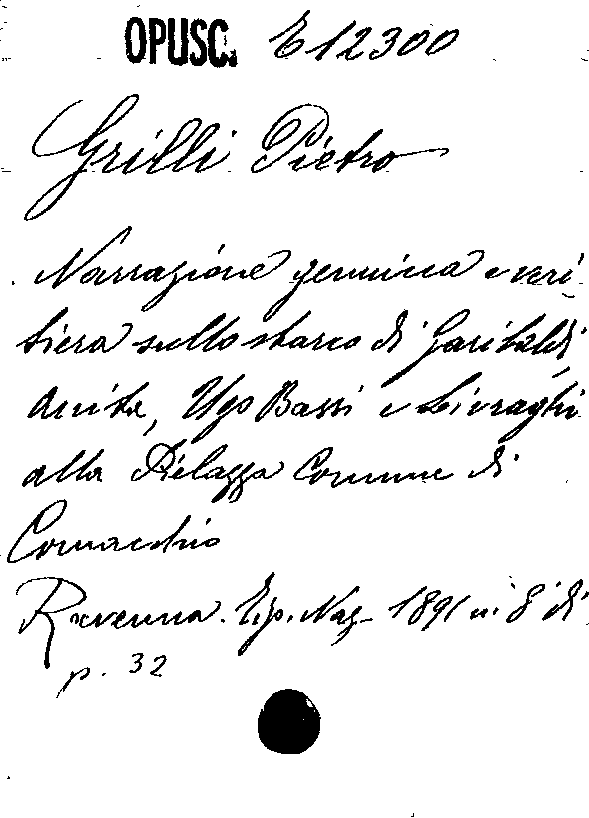 OPUSC. E 12300
Grilli Pietro
Narrazione genuina e veri-
tiera sullo sbarco di Garibaldi,
Anita, Ugo Bassi e Livraghi
alla Pielazza Comune di
Comacchio
Ravenna. Tip. Naz. 1891 in 8° di
p. 32